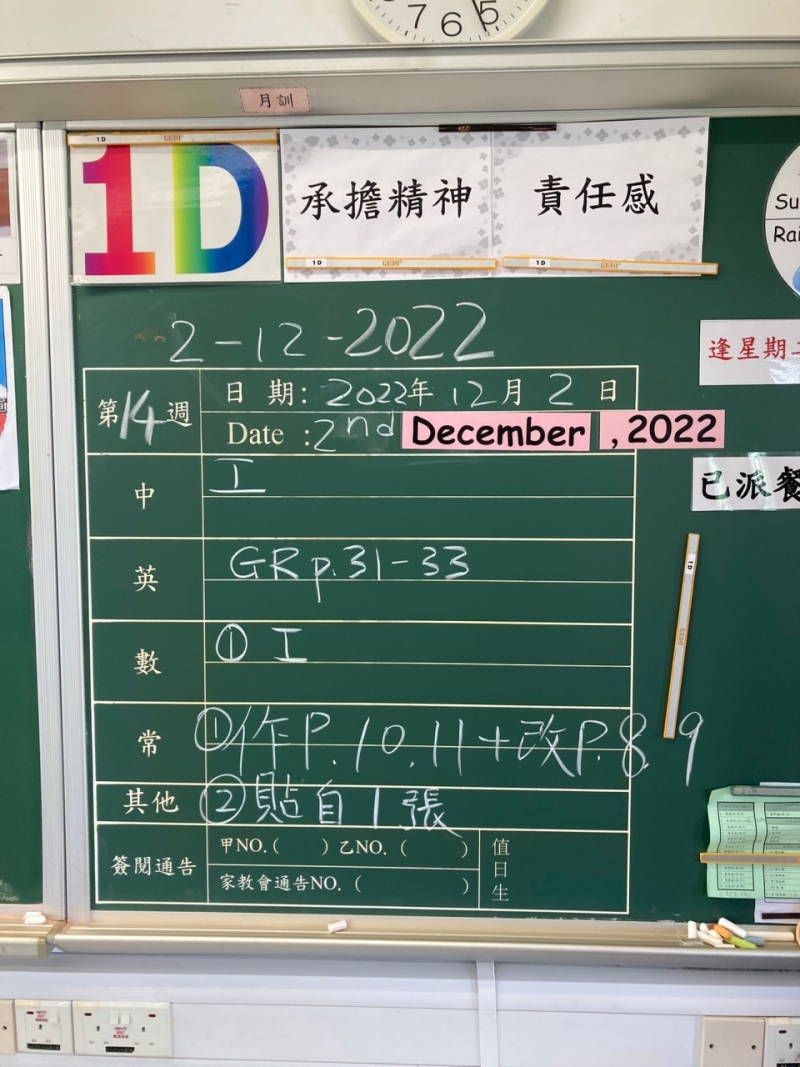 7 6 5
月訓
1D
承擔精神
責任感
1D
1D
Su
Rai
2-12-2022
逢星期
第14週
日期: 2022年12月2日
Date :2nd December ,2022
已派餐
中 工
英 GR p.31-33
1D
數 ① 工
常 ①作P.10,11+改P.8,9
其他 ②貼自1張
簽閱通告 甲NO.( ) 乙NO.( )
家教會通告NO.( )
值日生